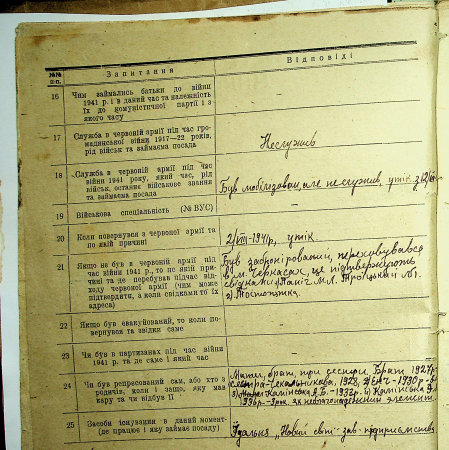 №№ п.п.
Запитання
Відповіді
16
Чим займались батьки до війни
1941 р. і в даний час та належність
їх до комуністичної партії і з
якого часу
–
17
Служба в червоній армії під час гро-
мадянської війни 1917—22 років,
рід військ та займаєма посада
Неслужив
18
Служба в червоній армії під час
війни 1941 року, який час, рід
військ, останнє військове звання
та займаєма посада
Був мобілізован, але не служив, утік з
19
Військова спеціальність (№ ВУС)
–
20
Коли повернувся з червоної армії та
по якій причині
2/VIII-1941 р, утік.
21
Якщо не був в червоній армії під
час війни 1941 р., то по якій при-
чині та де перебував підчас від-
ходу червоної армії (чим може
підтвердити, а коли свідками то їх
адреса)
Був заброніровани, переховувався
в м. Черкасах, це підтверджають
свідки
22
Якщо був евакуйований, то коли по-
вернувся та звідки саме
–
23
Чи був в партизанах під час війни
1941 р. та де саме і який час
–
24
Чи був репресований сам, або хто з
родичів, коли і защо, яку мав
кару та чи відбув її
Мати, брат, три сестри. Брат 1927р.
25
Засоби існування в даний момент
(де працює і яку займає посаду)
Їдальня „Новий світ"- зав. підприємства